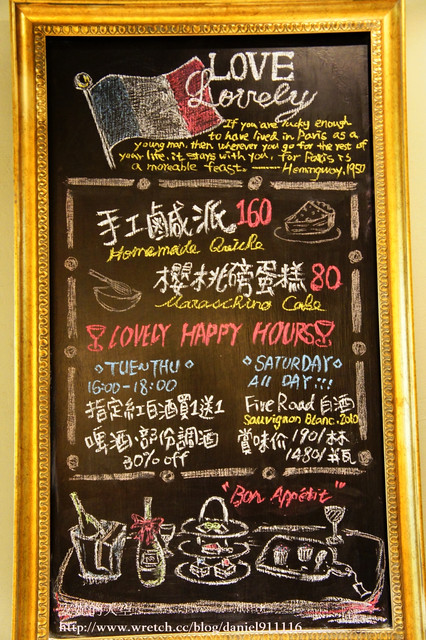 LOVE
Lovely
If you are lucky enough
to have lived in Paris as a
young man, then wherever you go for the rest of
your life, it stays with you, for Paris is
a moreable feast. ——— Hemingway, 1950
手工鹹派 160
Homemade Quiche
櫻桃磅蛋糕 80
Maraschino Cake
LOVELY HAPPY HOURS
TUE~THU
16:00-18:00
指定紅白酒買1送1
啤酒、部份調酒
30% off
SATURDAY
All DAY!!!
Five Road 白酒
Sauvignon Blanc. 2010
賞味價 190/杯
1480/瓶
"Bon Appétit"
http://www.wretch.cc/blog/daniel911116